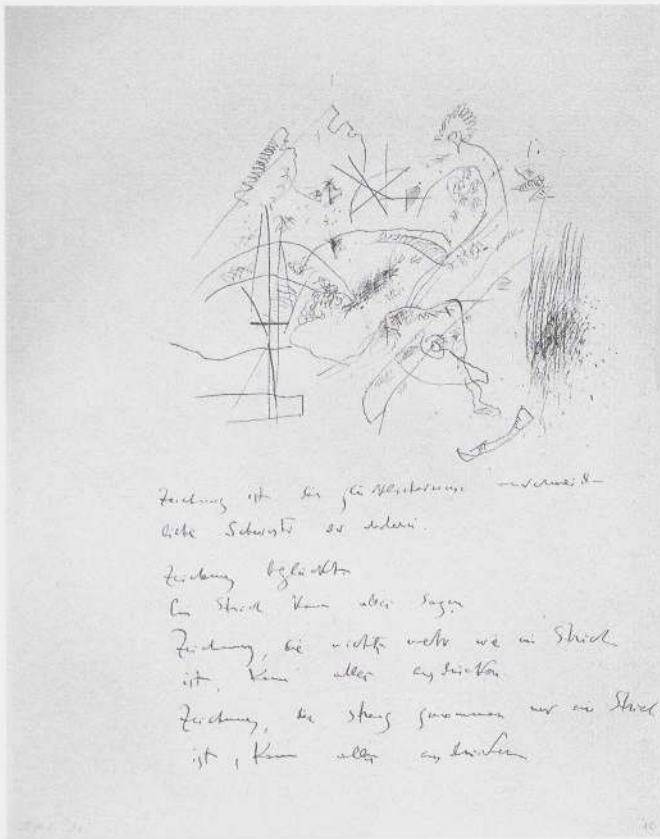 Zeichnung ist der
liebe Schwester der anderen.
Zeichnung beglückt
Ein Strich kann alles sagen
Zeichnung, die nichts mehr wie ein Strich
ist, kann alles ausdrücken
Zeichnung, die streng genommen nur ein Strich
ist, kann alles ausdrücken